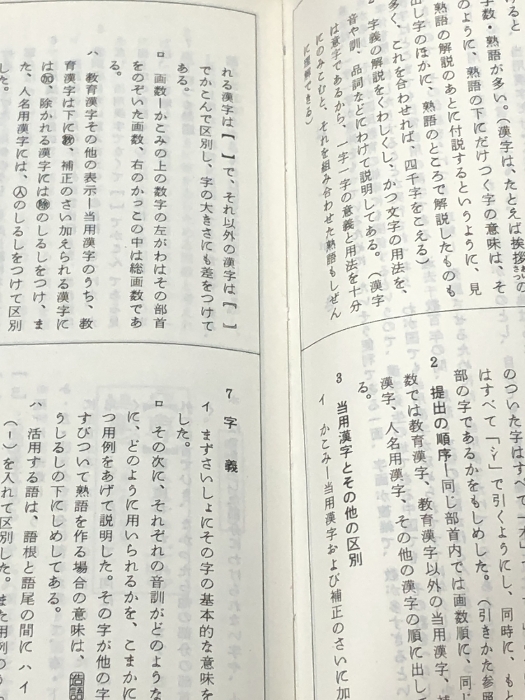 字数・熟語が多い。（漢字は、たとえば挨拶の
のように、熟語の下にだけつく字の意味は、そ
熟語の解説のあとに付説するというように、見
出し字のほかに、熟語のところで解説したものも
多く、これを合わせれば、四千字をこえる）
字義の解説をくわしくし、かつ文字の用法を、
音や訓、品詞などにわけて説明してある。（漢字
は意字であるから、一字一字の意義と用法を十分
にのみこむと、それを組み合わせた熟語もしぜん
に理解できる）
のついた字はすべて
はすべて「氵」で引くようにし、同時に、も
部の字であるかをもしめした。（引きかた参照
2 提出の順序―同じ部首内では画数順に、同じ
数では教育漢字、教育漢字以外の当用漢字、補
漢字、人名用漢字、その他の漢字の順に出し
る。
3 当用漢字とその他の区別
イ かこみ―当用漢字および補正のさいに加
れる漢字は【 】で、それ以外の漢字は〔 〕
でかこんで区別し、字の大きさにも差をつけて
ある。
ロ 画数―かこみの上の数字の左がわはその部首
をのぞいた画数、右のかっこの中は総画数であ
る。
ハ 教育漢字その他の表示―当用漢字のうち、教
育漢字は下に㊙、補正のさい加えられる漢字に
は、除かれる漢字には のしるしをつけ、ま
た、人名用漢字には、 のしるしをつけて区別
した。
7 字義
イ まずさいしょにその字の基本的な意味を
した。
ロ その次に、それぞれの音訓がどのような
に、どのように用いられるかを、こまかに
つ用例をあげて説明した。その字が他の字
すびついて熟語を作る場合の意味は、造語
うしるしの下にしめしてある。
ハ 活用する語は、語根と語尾の間にハイ
（―）を入れて区別した。また用例のう